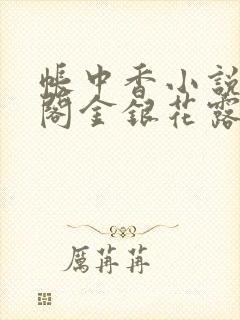 帳中香小說
閣金銀花露
厲苒苒